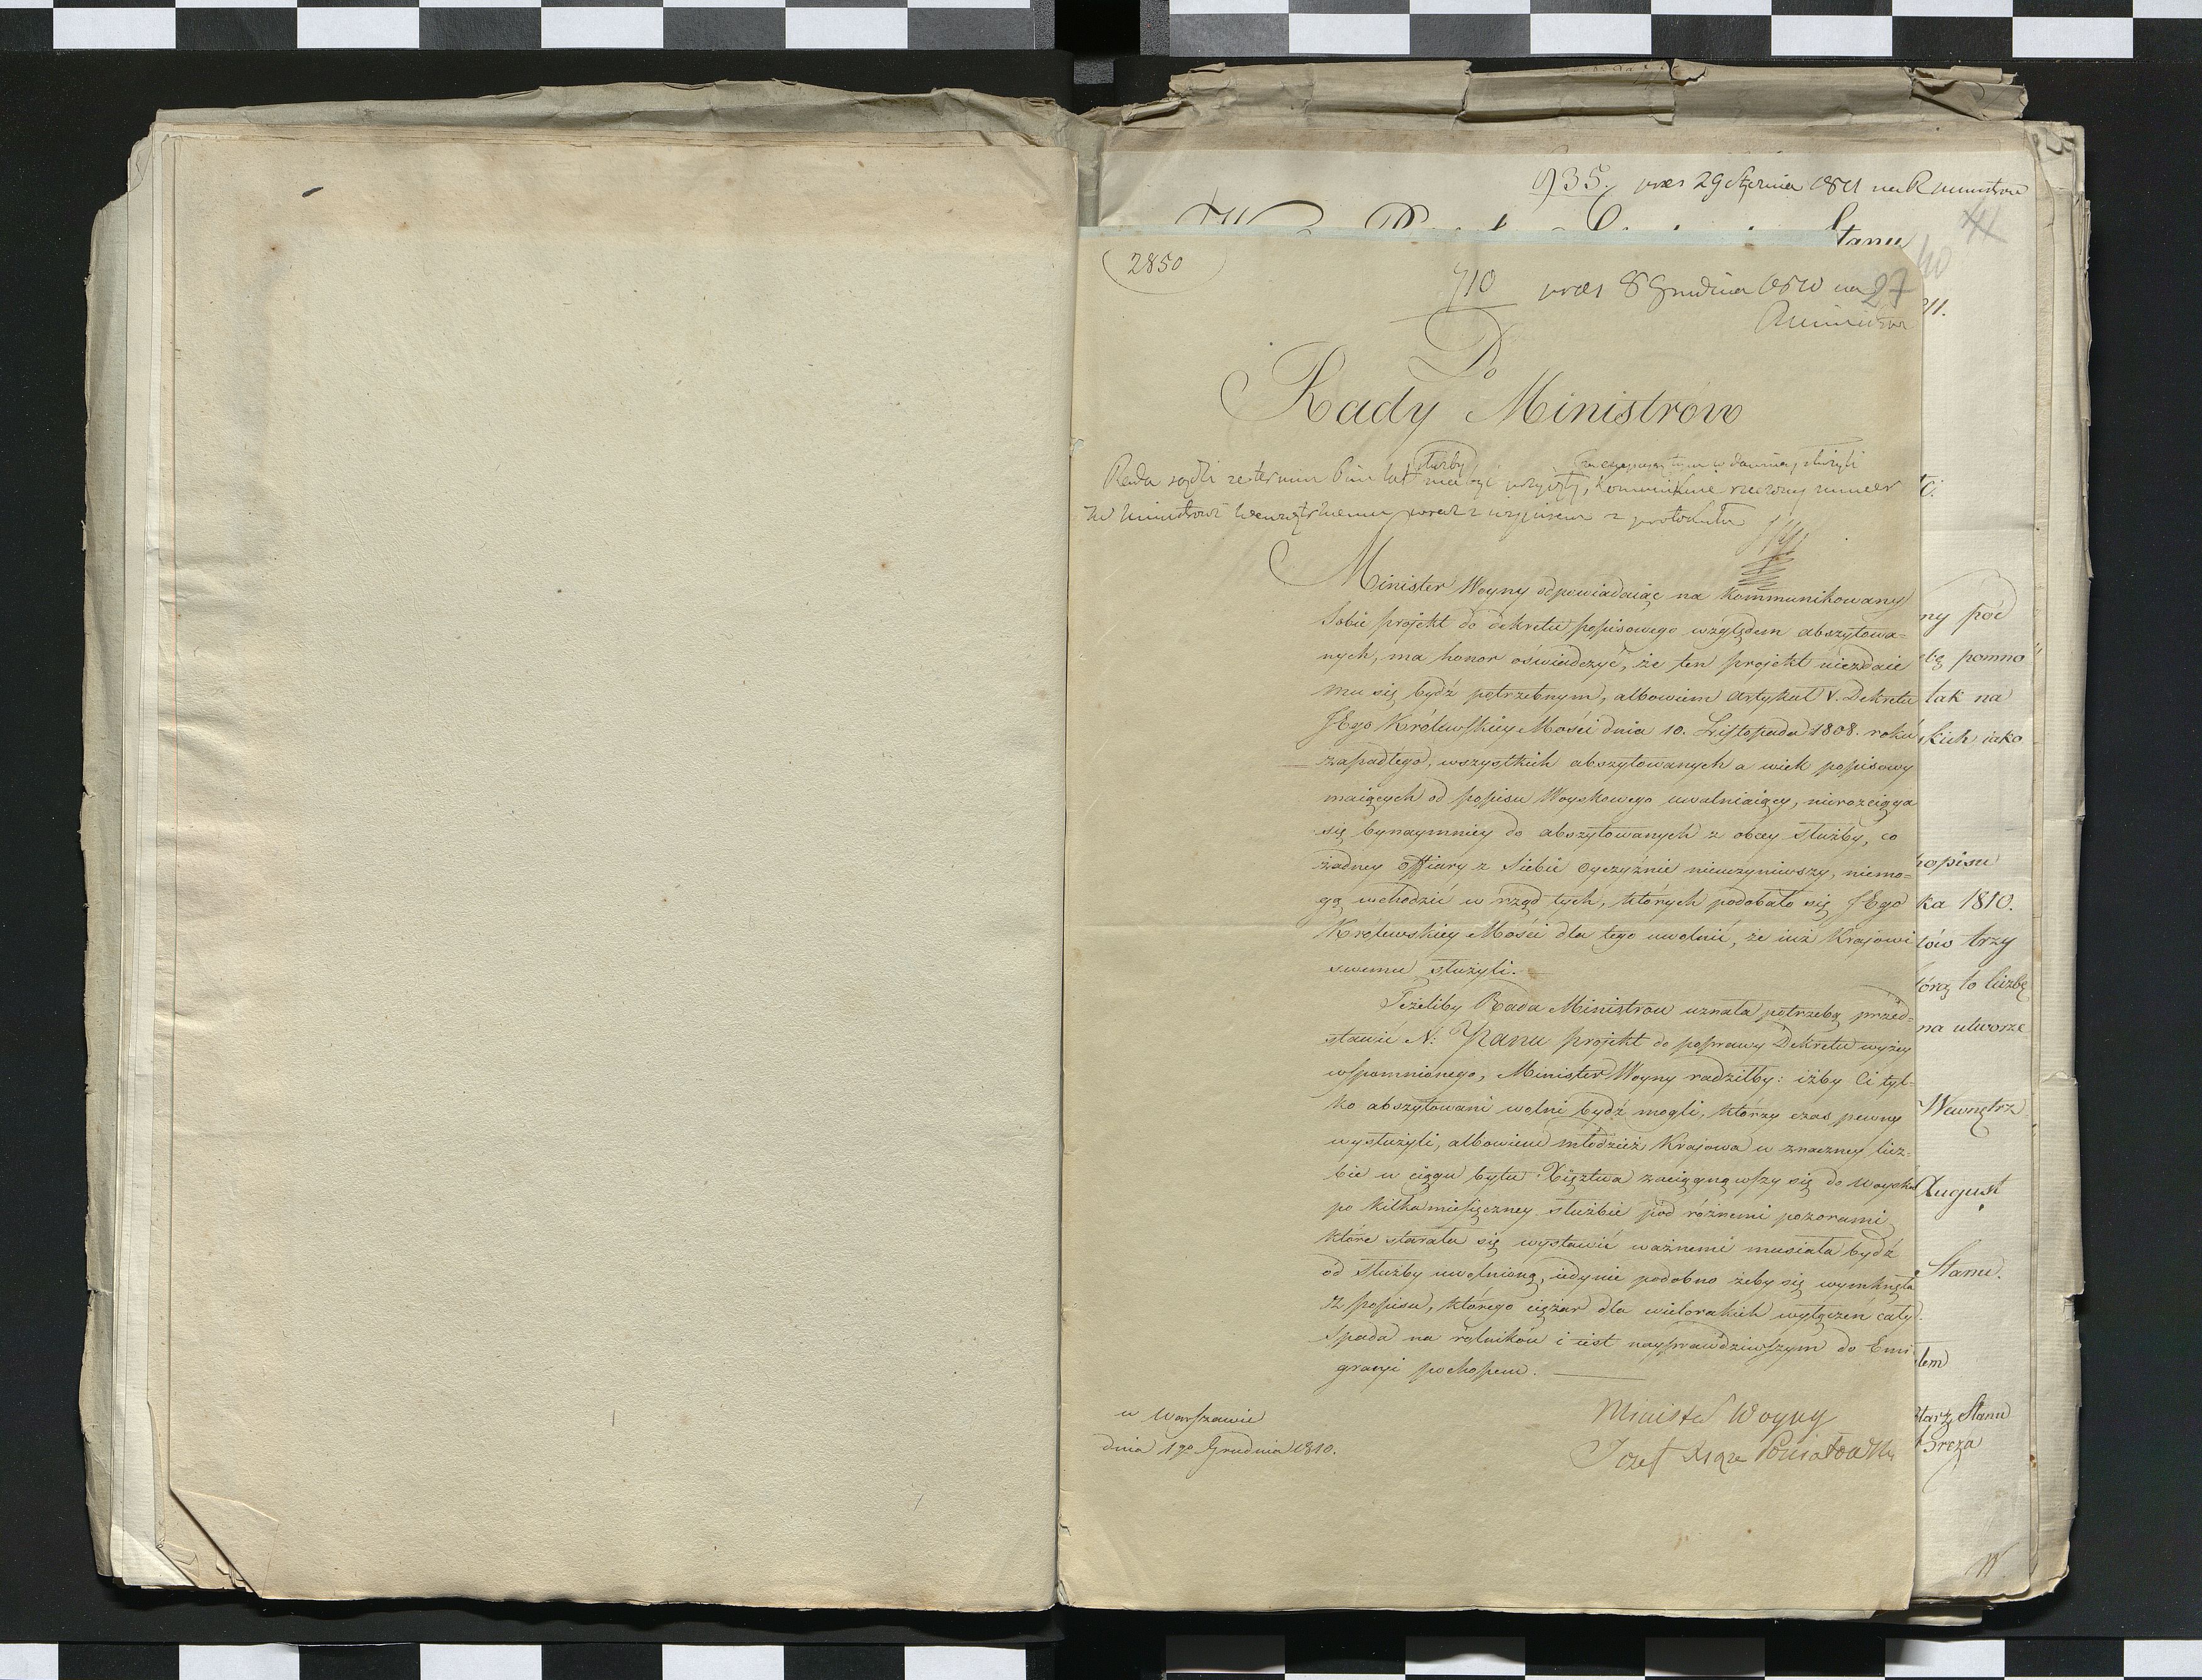 935. praes 29 Stycznia 1811 na R Ministrow
Stanu
41
40
2850
710 praes 8 Grudnia 1810 na 27
R Ministrow
Do
Rady Ministrów
służby
Rada sądzi że termin lat ma być przyięty,
Ministrowi Wewnętrznemu wraz z wypisem z protokułu
Minister Woyny odpowiadaiąc na kommunikowany
Sobie projekt do dekretu popisowego względem abszytowa=
nych, ma honor oświadczyć, że ten projekt niezdaie
mu się bydź potrzebnym, albowiem Artykuł V. Dekretu
JEgo Królewskiey Mości dnia 10. Listopada 1808. roku
zapadłego, wszystkich abszytowanych a wiek popisowy
maiących od popisu Woyskowego uwalniaiący, nierozciąga
się bynaymniey do abszytowanych z obcey służby, co
żadney offiary z Siebie Oyczyznie nieuczyniwszy, niemo=
gą wchodzić w rząd tych, których podobało się JEgo
Królewskiey Mości dla tego uwolnić, że iuż Krajowi
swemu służyli.
Jeżeliby Rada Ministrow uznała potrzebę przed=
stawić N: Panu projekt do poprawy Dekretu wyżey
wspomnionego, Minister Woyny radziłby: iżby Ci tyl=
ko abszytowani wolni bydź mogli, którzy czas pewny
wysłużyli, albowiem młodzież Krajowa w znaczney licz=
bie w ciągu bytu Xięztwa zaciągnąwszy się do woyska
po kilkamiesięczney służbie pod różnemi pozorami
które starała się wystawić ważnemi musiała bydź
od służby uwolnioną, iedynie podobno żeby się wymknęła
z popisu, którego ciężar dla wielorakich wyłączeń cały
spada na rolników i iest nayprawdziwszym do Emi
gracyi pochopem.
w Warszawie
dnia 1go Grudnia 1810.
Minister Woyny
Jozef Xiąże Poniatowski
11.
ny pod
pomno
tak na
skich iako
popisu
ka 1810.
tów trzy
órą to liczbę
na utworze
Wewnętrz
August
Stanu.
tarz Stanu
Breza